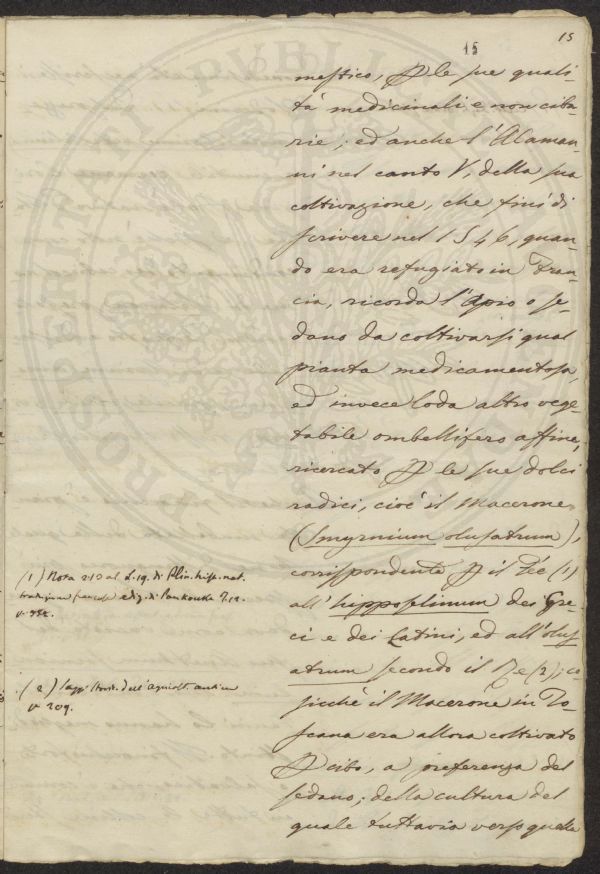 15
15
mestico, P le sue quali-
tà medicinali e non ciba-
rie; ed anche l'Alaman-
ni nel canto V, della sua
coltivazione, che finì di
scrivere nel 1546, quan-
do era refugiato in Fran-
cia, ricorda l'Apio o se-
dano da coltivarsi qual
pianta medicamentosa,
ed invece loda altro vege-
tabile ombellifero affine,
ricercato P le sue dolci
radici, cioè il Macerone
(Smyrnium olusatrum),
corrispondente P il Fée (1)
all'hipposelinum dei Gre-
ci e dei Latini, ed all'olus
atrum secondo il Re (2); co-
sicchè il Macerone in To-
scana era allora coltivato
P cibo, a preferenza del
sedano; della cultura del
quale tuttavia verso quella
(1) Nota 210 al L. 19. di Plin. hist. nat.
traduzione francese ediz. di Pankouke T. 12.
p.
(2) Sagg. stor. dell'agricolt. antica
p. 209.